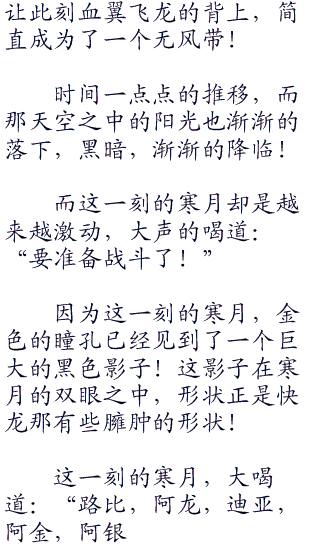 让此刻血翼飞龙的背上，简
直成为了一个无风带！
时间一点点的推移，而
那天空之中的阳光也渐渐的
落下，黑暗，渐渐的降临！
而这一刻的寒月却是越
来越激动，大声的喝道：
“要准备战斗了！”
因为这一刻的寒月，金
色的瞳孔已经见到了一个巨
大的黑色影子！这影子在寒
月的双眼之中，形状正是快
龙那有些臃肿的形状！
这一刻的寒月，大喝
道：“路比，阿龙，迪亚，
阿金，阿银